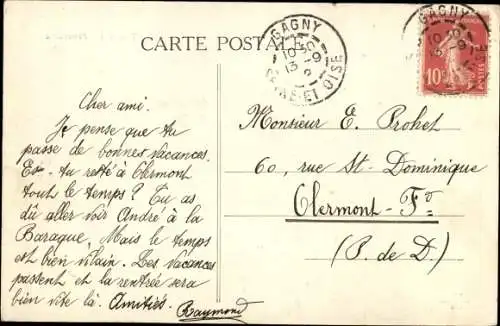 CARTE POSTALE
GAGNY
10-30
13-9
SEINE-ET-OISE
GAGNY
10
10c
Cher ami.
Je pense que tu
passe de bonnes vacances.
Es-tu resté à Clermont
tout le temps ? Tu as
dû aller voir André à la
Baraque. Mais le temps
est bien vilain. Les vacances
passent et la rentrée sera
bien vite là. Amitiés.
Raymond
Monsieur E. Prohet
60, rue St-Dominique
Clermont-Fd
(P. de D)